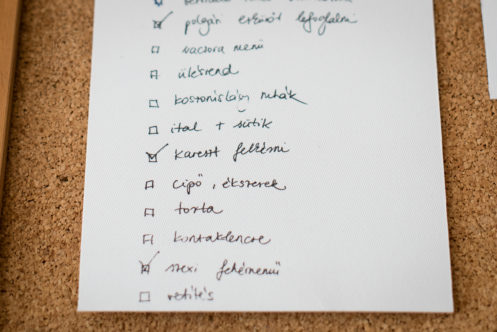 polgári esküvőt lefoglalni
vacsora menü
ülésrend
koszorúslány ruhák
ital + sütik
Karesz felkérni
cipő, ékszerek
torta
kontaktlencse
szexi fehérnemű
vetítés